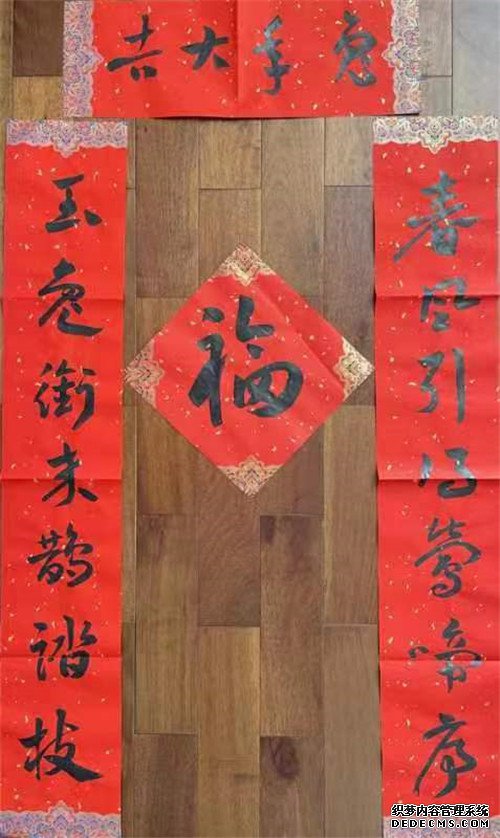 兔年大吉
春风引得莺啼序
玉兔衔来鹊踏枝
福
织梦内容管理系统
DEDECMS.COM